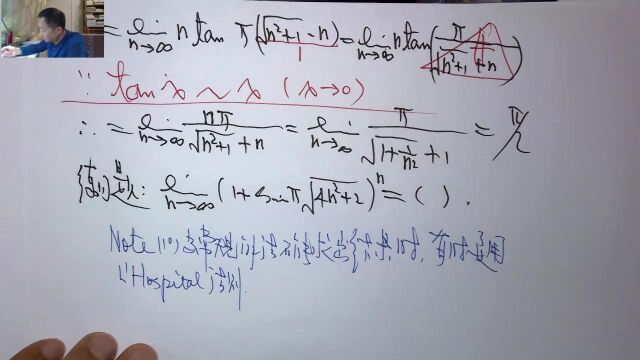 = lim n→∞ n tan π(√(n²+1) - n) = lim n→∞ n tan(π/(√(n²+1) + n))
1
∵ tan x ~ x (x→0)
∴ = lim n→∞ nπ/(√(n²+1) + n) = lim n→∞ π/(√(1 + 1/n²) + 1) = π/2
lim n→∞ (1 + sin π√(4n²+2))ⁿ = ( ).
Note (10) 当常规 法 求出 结果时, 有时 用
L'Hospital 法则.